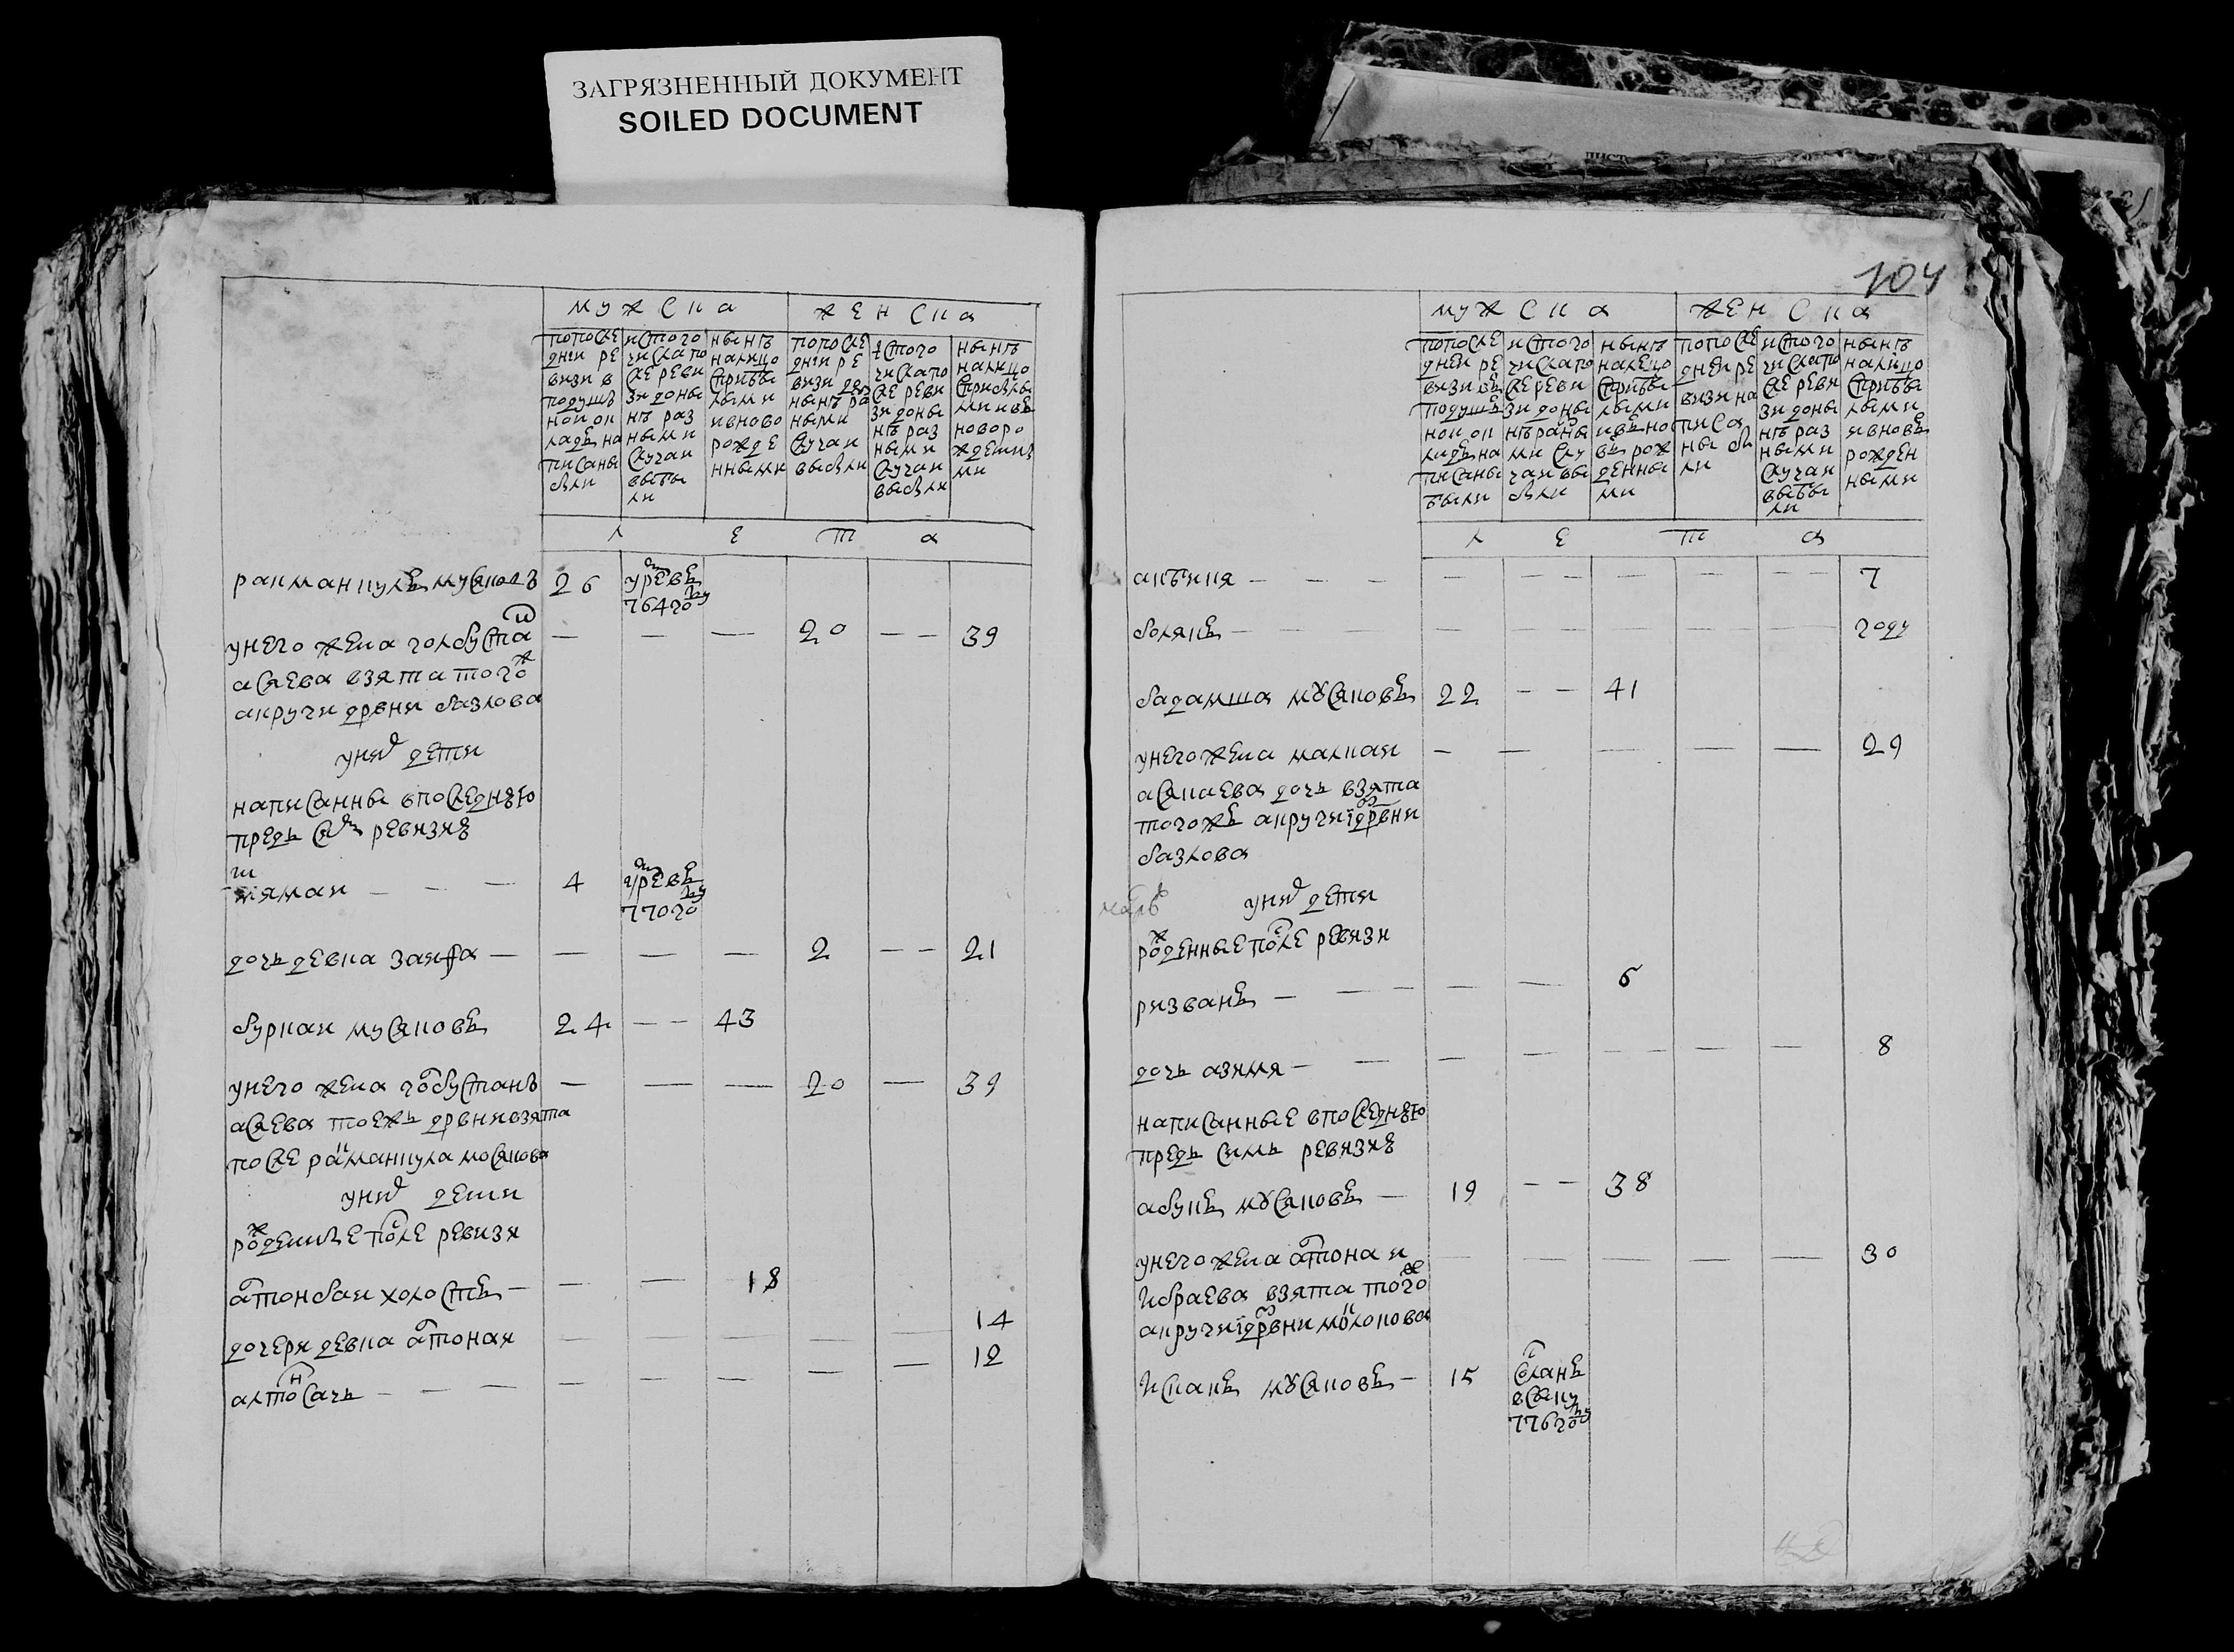 ЗАГРЯЗНЕННЫЙ ДОКУМЕНТ
SOILED DOCUMENT
мужска женска
попосле дней ре визи в подушъ ной ок ладъ на писаны были
истого числа по сле реви зи до ны нѣ раз ными случаи выбы ли
нынѣ налицо спрiбы лыми ивново рожде нными
попосле дней ре визи
истого числа по сле реви зи до ны нѣ раз ными случаи выбыли
нынѣ налицо сприбылы ми ивъ новоро жденны ми
лета
ракманкулъ мусяковъ 26 умре въ 764 году
унего женаголбуста — — — 20 — — 39
асяева взята того ж
акруги дрвни базлова
уних дети
написанны впоследнюю
предъ сям ревизию
шямаи — — — 4 умре въ 770 году
дочь девка заифа — — — — 2 — — 21
буркаи мусяковъ 24 — — 43
унего жена голбустанъ — — — 20 — 39
асяева тоежъ дрвни взята
после ракманкула мосякова
уних дети
рожденные после ревизи
алтонбаи холостъ — — — 18
дочери девка алтоная — — — — — 14
алтонсачь — — — — — — — — 12
104
мужска женска
попосле дней ре визи въ подушъ ной ок ладъ на писаны были
истого числа по сле реви зи до ны нѣ разны ми слу чаи вы были
нынѣ налецо спрiбы лыми ивъ но въ рож денны ми
попосле дней ре визи на писа ны бы ли
истого числа по сле реви зи до ны нѣ раз ными случаи выбы ли
нынѣ налицо спрiбы лыми ивновъ рожден ными
лета
акбикя — — — — — — — — — 7
болякъ — — — — — — — — — году
бадамша мусяковъ 22 — — 41
унего жена малкаи — — — — — 29
асякаева дочь взята
тогожъ акруги дрвни
базлова
уних дети
рожденные после ревизи
ризванъ — — — — — 6
дочь азимя — — — — — — — — 8
написанные впоследнюю
предъ симъ ревизию
абукъ мусяковъ — 19 — — 38
унего жена алтонаи — — — — — 30
ибраева взята того ж
акруги дрвни
искакъ мусяковъ — 15 сланъ 776 году